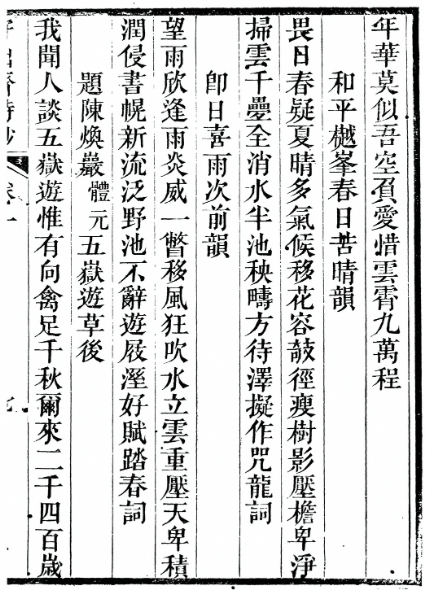 年華莫似吾空負愛惜雲霄九萬程
和平樾峯春日苦晴韻
畏日春疑夏晴多氣候移花容皷徑瘦樹影壓檐卑淨
掃雲千疊全消水半池秧疇方待澤擬作咒龍詞
卽日喜雨次前韻
望雨欣逢雨炎威一瞥移風狂吹水立雲重壓天卑積
潤侵書幌新流泛野池不辭遊屐溼好賦踏春詞
題陳煥巖體元五嶽遊草後
我聞人談五嶽遊惟有向禽足千秋爾來二千四百歲